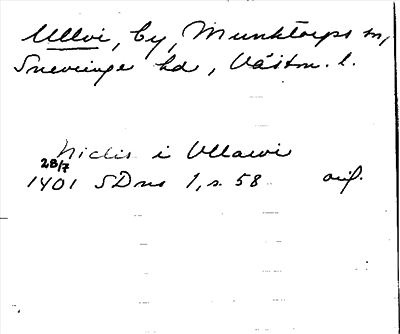 Ullvi, by, Munktorps sn,
Snevringe hd, Västm. l.
Niclis i Ullawi
28/7
1401 SDns 1, s. 58 orig.